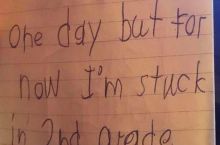 One day but for
now I'm stuck
in 2nd grade